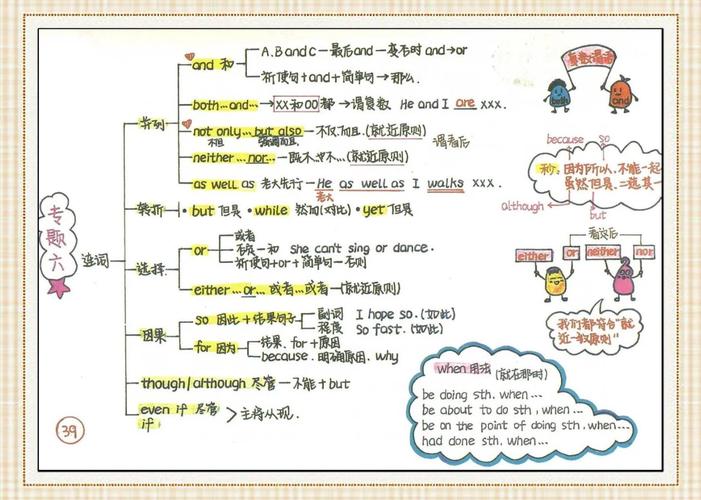 专题六
连词
并列
and 和
A.B and C — 最后and — 变否时 and → or
祈使句 + and + 简单句 → 那么.
both...and... → XX和OO都 → 谓复数 He and I are xxx.
not only... but also → 不仅而且.(就近原则)
不但
谓看后
neither... nor... — 既不也不...(就近原则)
as well as 老大先行 — He as well as I walks xxx.
老大
转折
·but 但是 ·while 然而(对比) ·yet 但是
选择
or
或者
否定—和 she can't sing or dance.
祈使句+or+简单句—否则
either...or... 或者...或者—(就近原则)
因果
so 因此 + 结果句子
副词 I hope so. (如此)
程度 So fast. (如此)
for 因为
结果, for + 原因
because. 明确原因. why
though/although 尽管 — 不能 + but
even if 尽管
if
主将从现.
39
复数谓语
both
and
because
so
因为所以, 不能一起
虽然但是, 二选其一
although
but
看最后
either
or
neither
nor
我们都符合"就
近一致原则"
when用法 (就在那时)
be doing sth. when...
be about to do sth, when...
be on the point of doing sth, when...
had done sth, when...